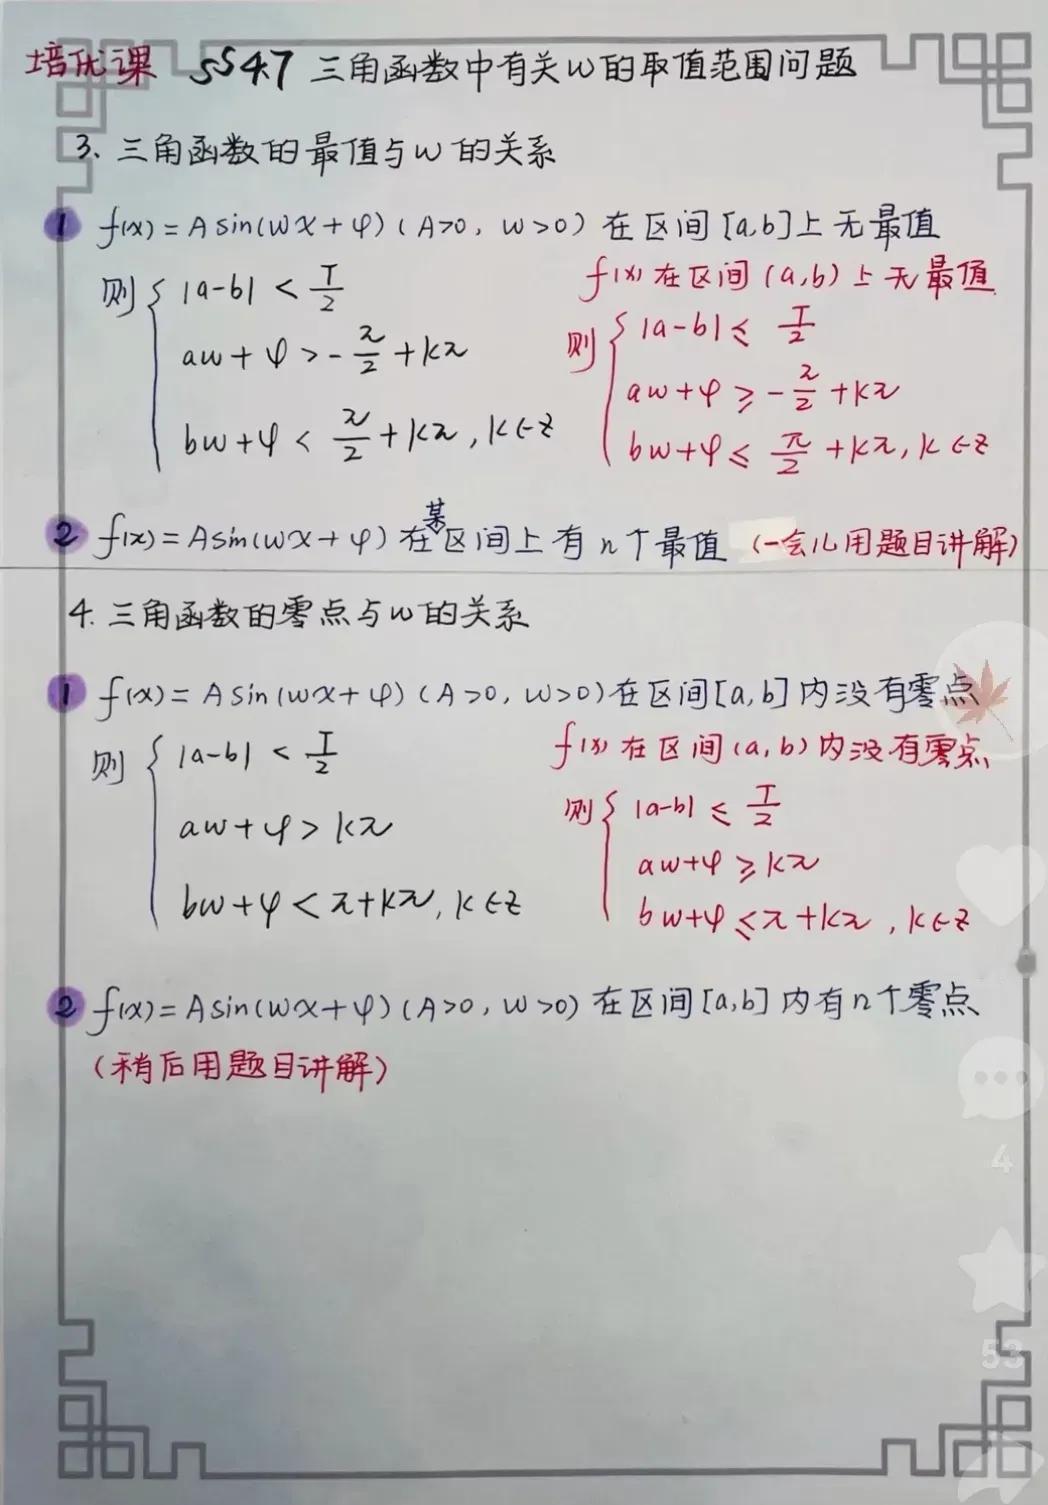 培优课 §§4.7 三角函数中有关w的取值范围问题
3、三角函数的最值与w的关系
1 f(x)=Asin(wx+φ)(A>0, w>0)在区间[a,b]上无最值
则{|a-b|<T/2
aw+φ>-π/2+kπ
bw+φ<π/2+kπ,k∈z
f(x)在区间(a,b)上无最值
则{|a-b|≤T/2
aw+φ≥-π/2+kπ
bw+φ≤π/2+kπ,k∈z
2 f(x)=Asin(wx+φ)在某区间上有n个最值 (一会儿用题目讲解)
4.三角函数的零点与w的关系
1 f(x)=Asin(wx+φ)(A>0,w>0)在区间[a,b]内没有零点
则{|a-b|<T/2
aw+φ>kπ
bw+φ<π+kπ,k∈z
f(x)在区间(a,b)内没有零点
则{|a-b|≤T/2
aw+φ≥kπ
bw+φ≤π+kπ,k∈z
2 f(x)=Asin(wx+φ)(A>0,w>0)在区间[a,b]内有n个零点
(稍后用题目讲解)
4
53